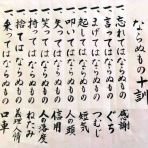 ならぬもの十訓
一、忘れてはならぬもの 感謝
一、言ってはならぬもの ぐち
一、まげてはならぬもの つむじ
一、起してはならぬもの 短気
一、叩いてはならぬもの 人の頭
一、失ってはならぬもの 信用
一、笑ってはならぬもの 人の落度
一、持ってはならぬもの ねたみ
一、捨ててはならぬもの 義理人情
一、乗ってはならぬもの 口車